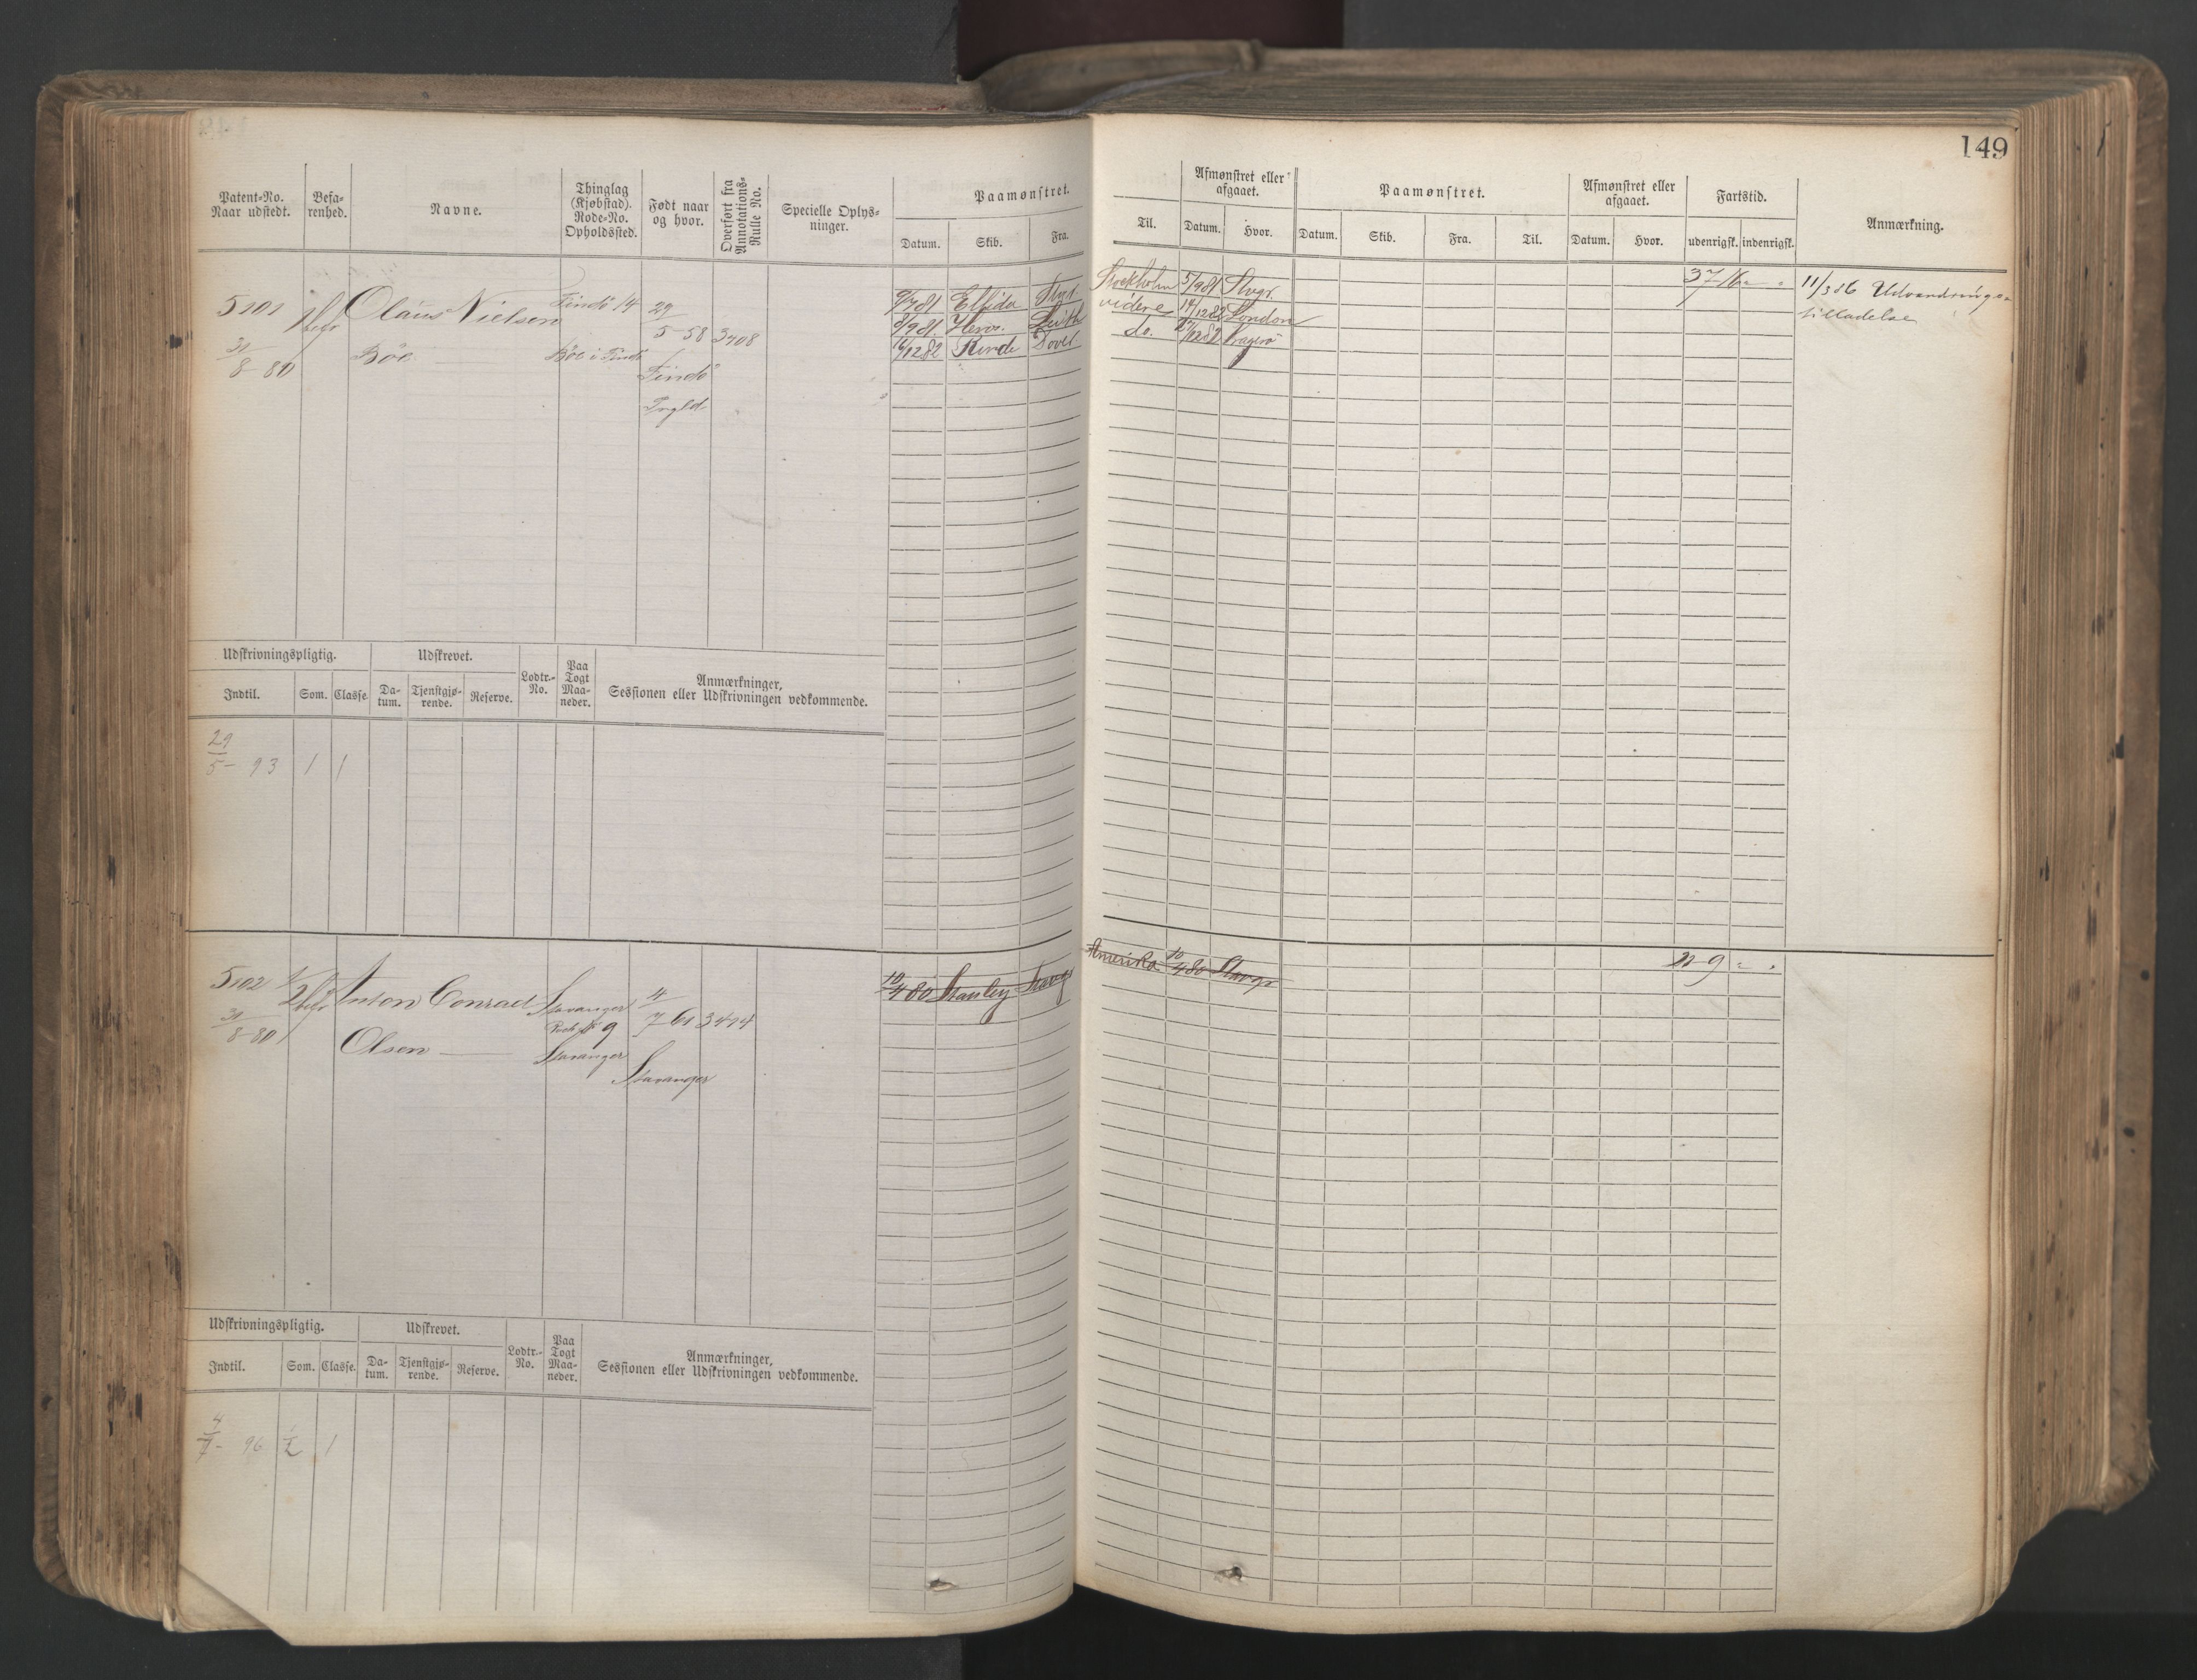 149
Patent-No. Naar udstedt. Befa-renhed. Navne. Thinglag (Kjøbstad). Rode-No. Opholdssted. Født naar og hvor. Overført fra Annotations-Rulle No. Specielle Oplys-ninger. Paamønstret. Afmønstret eller afgaaet. Paamønstret. Afmønstret eller afgaaet. Fartstid. Anmærkning.
Datum. Skib. Fra. Til. Datum. Hvor. Datum. Skib. Fra. Til. Datum. Hvor. udenrigsk. indenrigsk.
5101 Olaus Nielsen Findö 14 29 9/7 81 Elfida Stvgr Stockholm 5/9 81 Stvgr. 37 16 11/3 86 Udvandrings-
5-58 3408 8/9 81 Hero Leith videre 14/12 82 London tilladelse
31 8-80 Böe Böe i Findö 16/12 82 Rinde Dover do.
Findö
Udskrivningspligtig. Udskrevet. Lodtr.-No. Paa Togt Maa-neder. Anmærkninger, Sessionen eller Udskrivningen vedkommende.
Indtil. Som. Classe. Da-tum. Tjenstgjø-rende. Reserve.
29
5- 93 1 1
5102 1/2 befr Anton Conrad Stavanger 4 10/4 80 Stanley Stavgr Amerika 10/4 80 Stavgr 9
31 8-80 9 7 61 3414
Olsen Stavanger
Stavanger
Udskrivningspligtig. Udskrevet. Lodtr.-No. Paa Togt Maa-neder. Anmærkninger, Sessionen eller Udskrivningen vedkommende.
Indtil. Som. Classe. Da-tum. Tjenstgjø-rende. Reserve.
4
7- 96 1/2 1